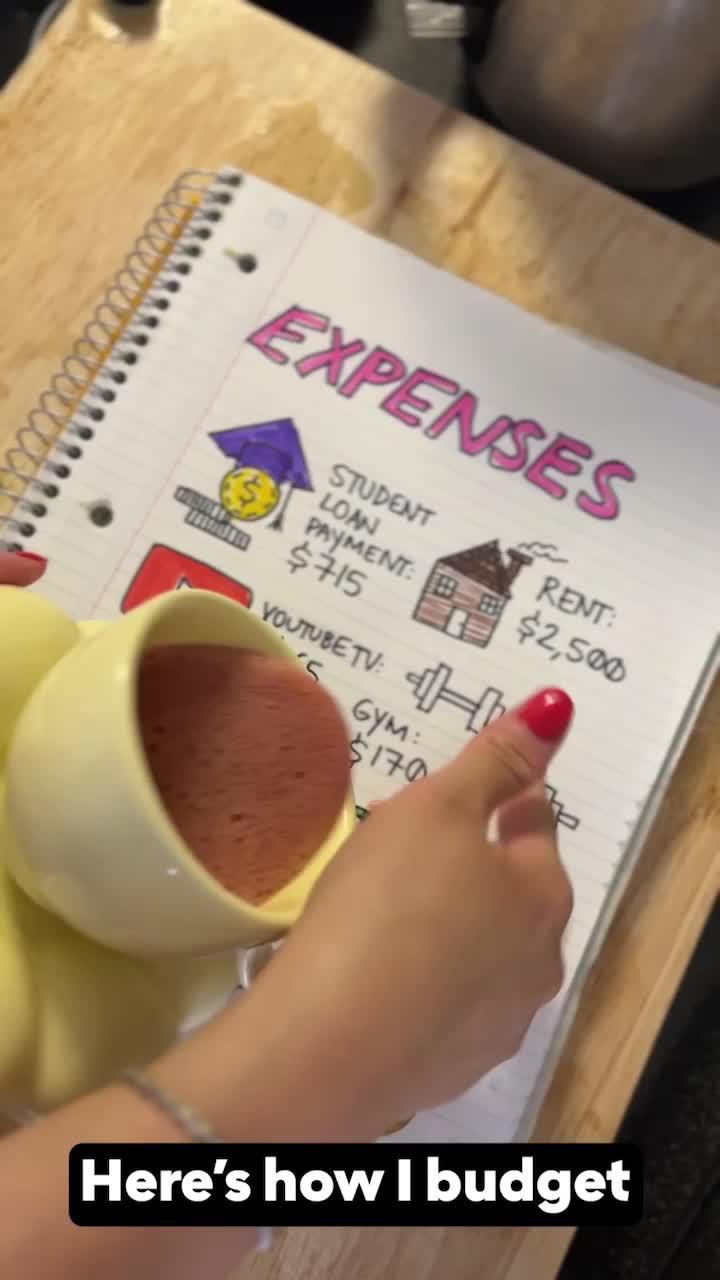 EXPENSES
STUDENT
LOAN
PAYMENT:
$715
RENT:
$2,500
YOUTUBETV:
GYM:
$170
Here's how I budget